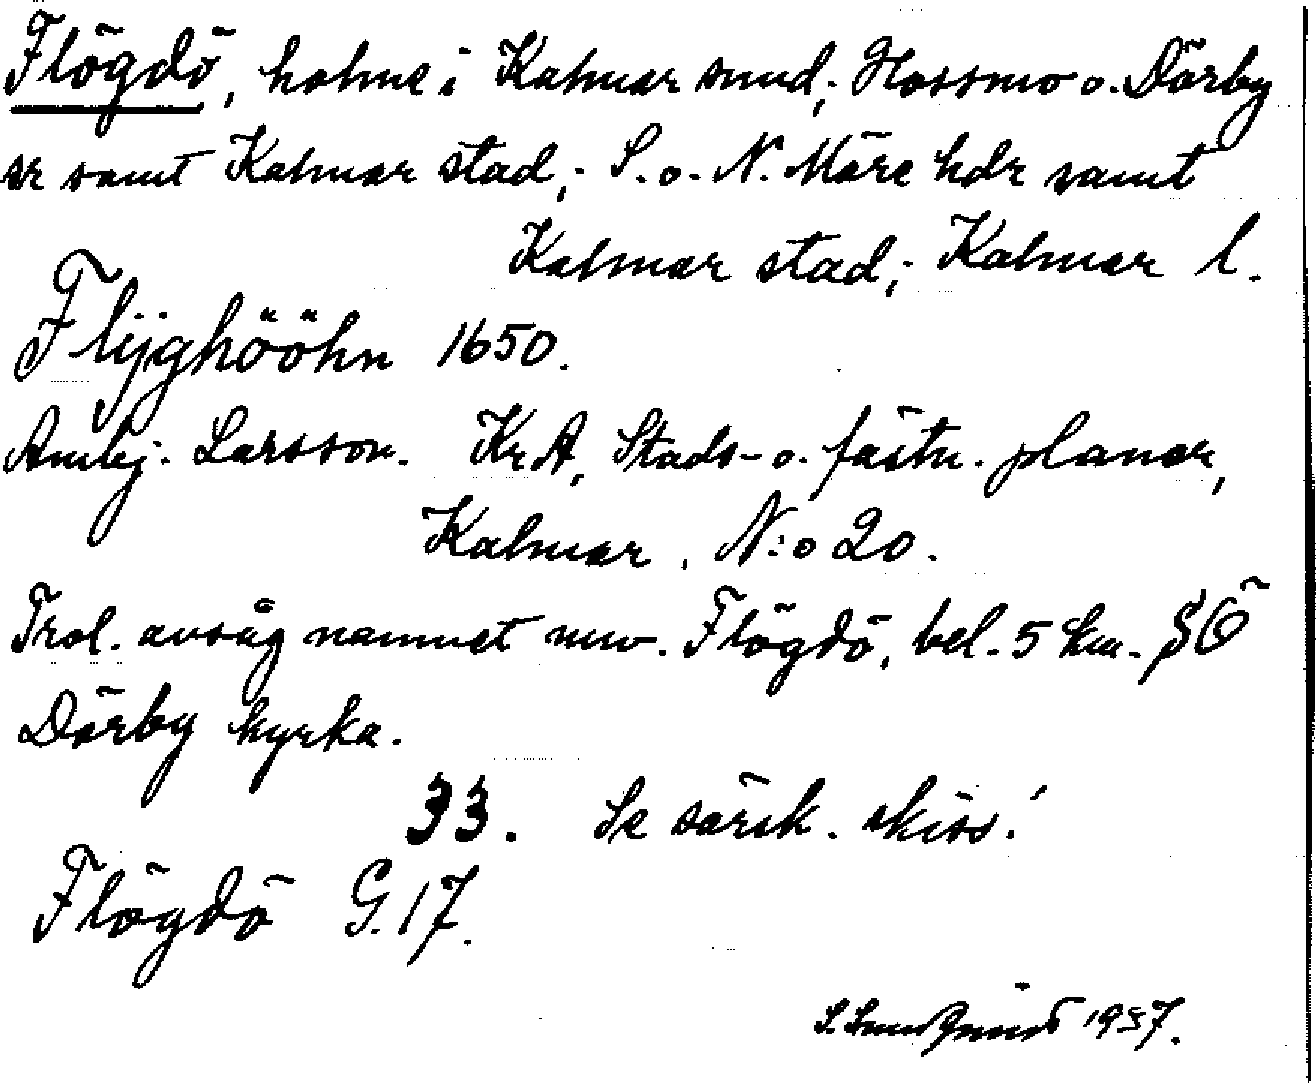 Flögdö, holme i Kalmar sund; Hossmo o. Dörby
sr samt Kalmar stad; S. o. N. Möre hdr samt
Kalmar stad; Kalmar l.
Flÿghööhn 1650.
Larsson. KrA, Stads- o. fästn. planer,
Kalmar, N:o 20.
Trol. avsåg namnet nuv. Flögdö, bel. 5 km. SÖ
Dörby kyrka.
33. Se särsk. skiss!
Flögdö G. 17.
1937.